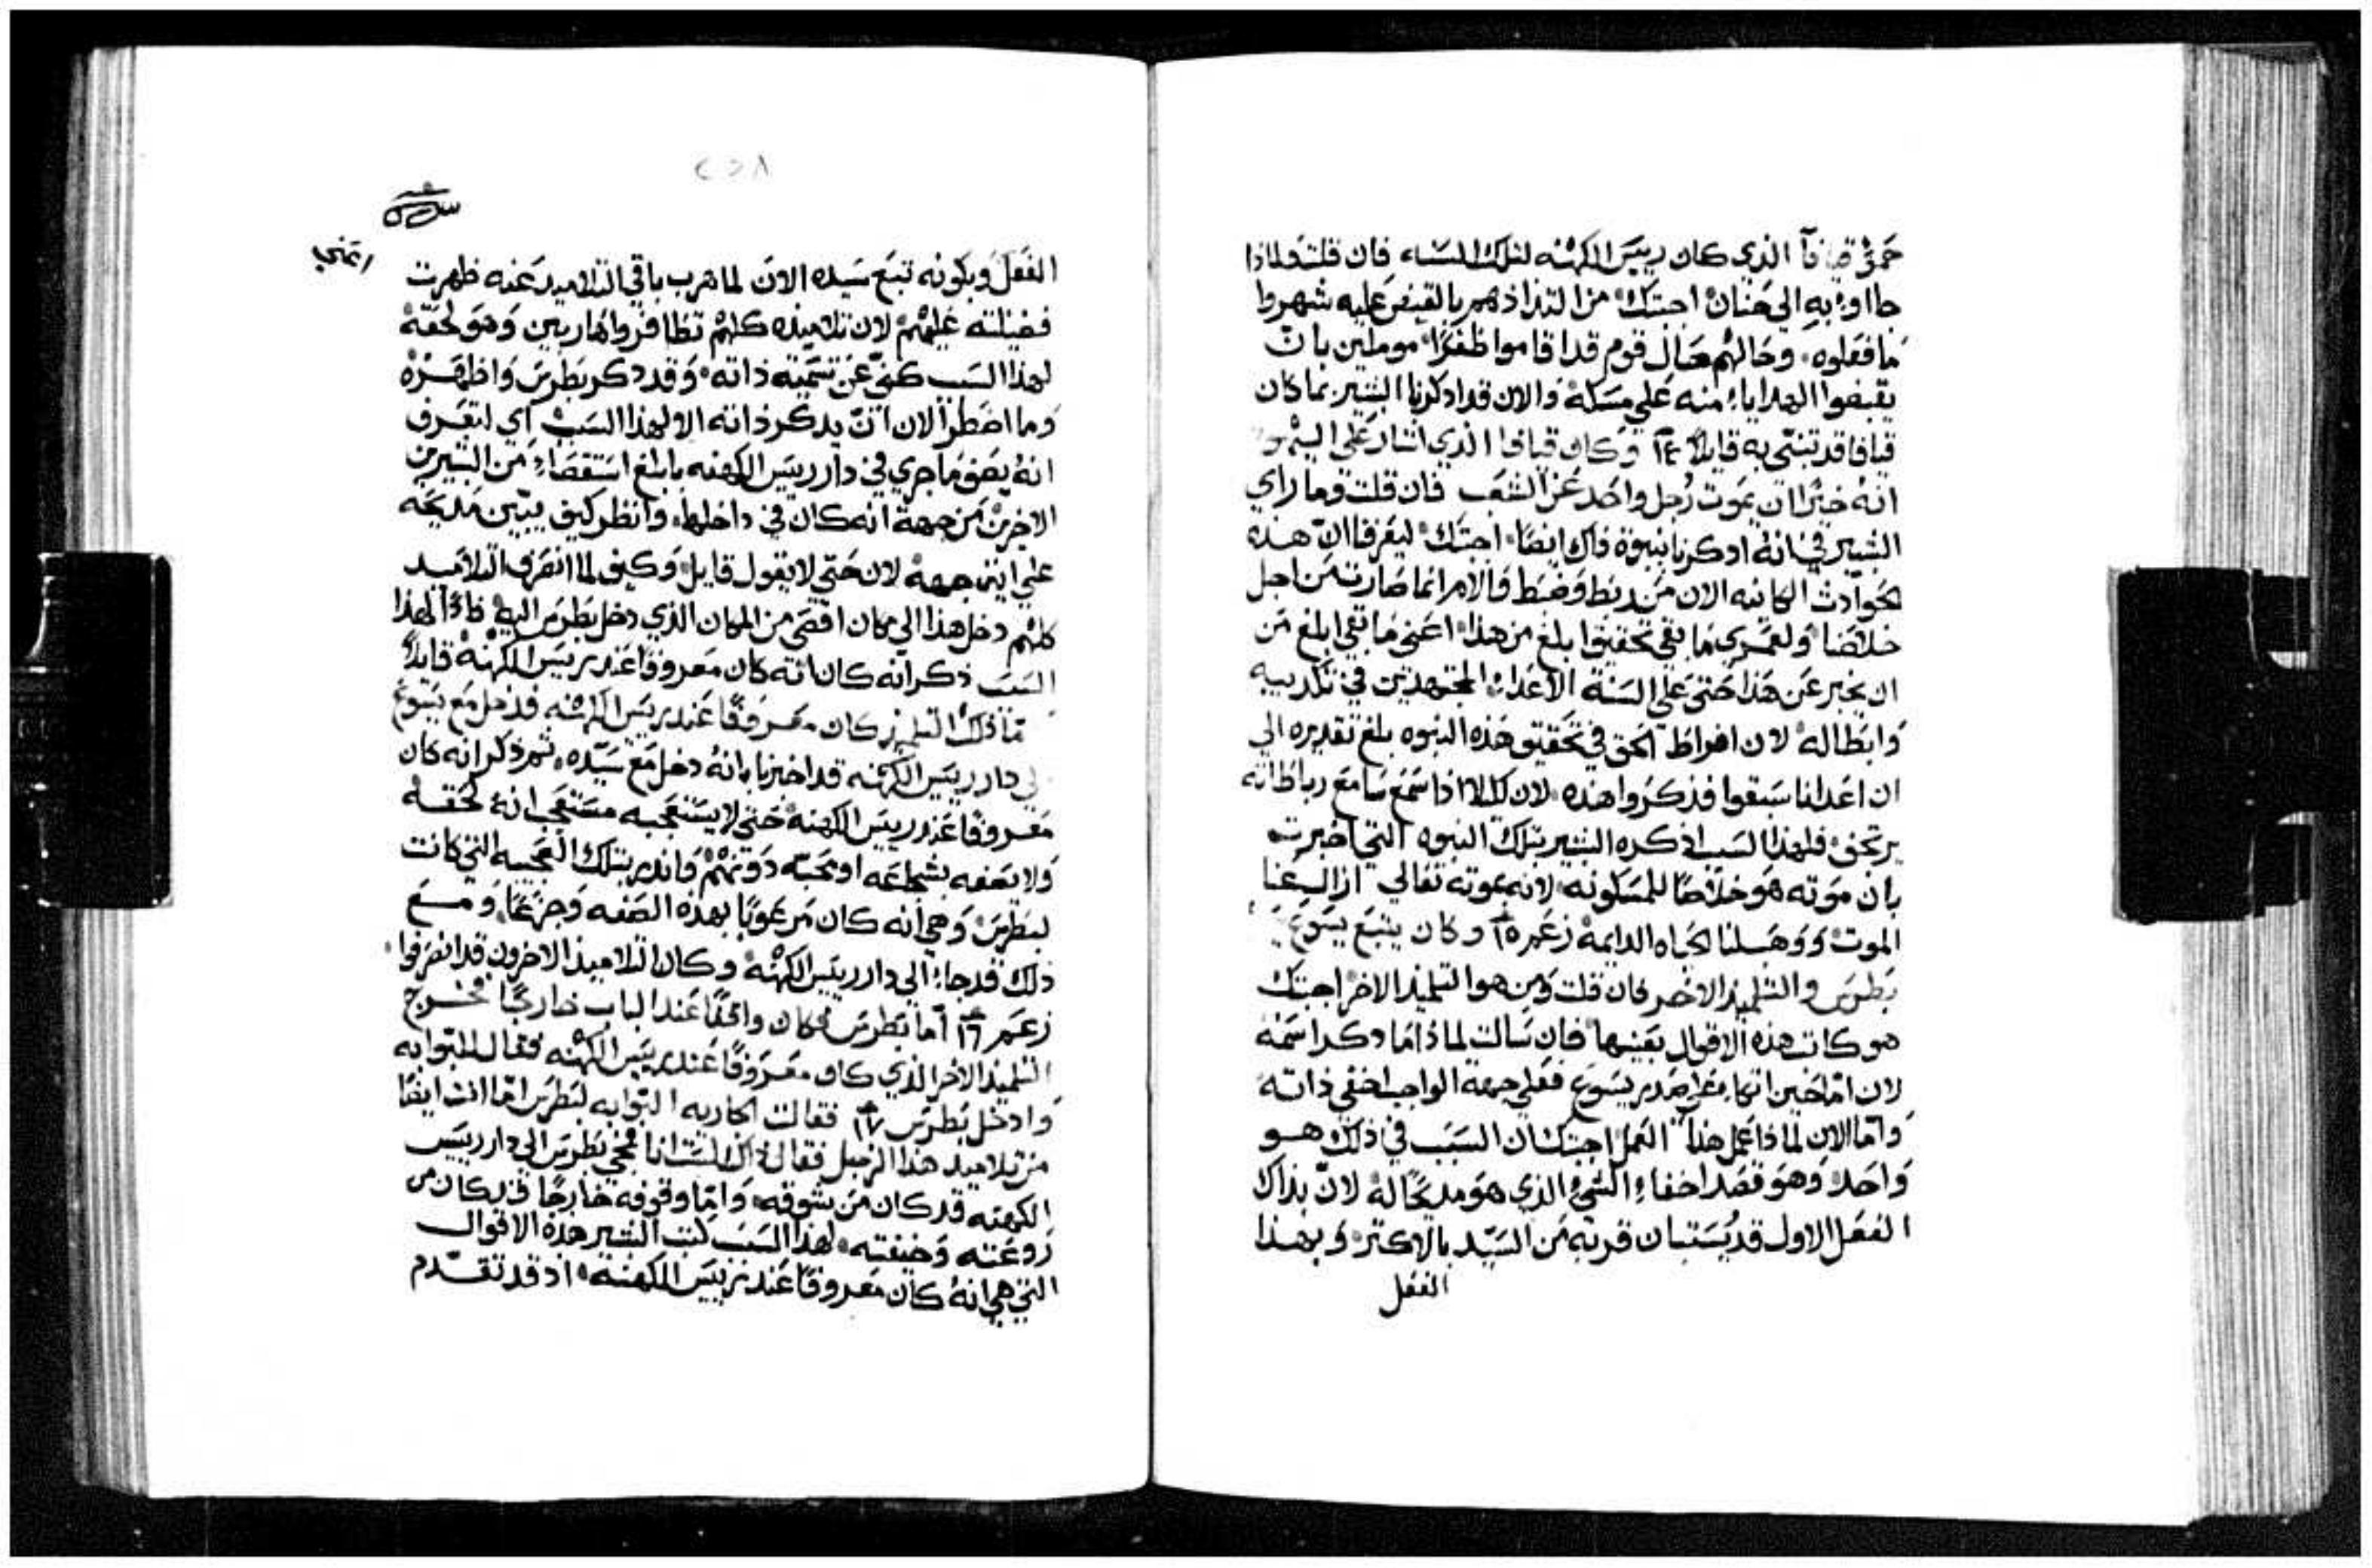 حمى قيافا الذي كان رييس الكهنه لتلك السنه فان قلت ولماذا
جااوا به الي حنان اجبتك من التذاذهم بالقبض عليه شهروا
ما فعلوه وحالهم حال قوم قد اقاموا ظفرًا موملين بان
يقبضوا الهدايا منه علي مسكه والان قد ادكرنا البشير بما كان
قيافا قد تنبي به قايلاً ١٤ وكان قيافا الذي اشار علي اليهود
انه خيرًا ان يموت رجل واحد عن الشعب فان قلت وما راي
البشير في انه ادكرنا بنبوة ذاك ايضًا اجبتك ليعرفنا ان هذه
الحوادث الكاينه الان من ربط وضبط والام انما صارت من اجل
خلاصنا ولعمري ما بقي تحقيق ابلغ من هذا اعني ما بقي ابلغ من
ان يخبر عن هذا حتي علي السنة الاعداء المجتهدين في تكذيبه
وابطاله لان افراط الحق في تحقيق هذه النبوه بلغ تقديره الي
ان اعدانا سبقوا فذكروا هذه لان كيلا اذا سمع سامع رباطاته
يرتجف فلهذا السبب اذكره البشير بتلك النبوه التي اخبرت
بان موته هو خلاصًا للمسكونه لانه بموته تعالي ازال عنا
الموت ووهب لنا الحياه الدايمة زعم ١٥ وكان يتبع يسوع
بطرس والتلميذ الاخر فان قلت ومن هو التلميذ الاخر اجبتك
هو كاتب هذه الاقوال بعينها فان سالت لماذا ما دكر اسمه
لان اما حين اتكا علي صدر يسوع فعلي جهة الواجب اخفي ذاته
واما الان لماذا عمل هذا العمل اجبتك ان السبب في ذلك هو
واحد وهو قصد اخفاء الشي الذي هو مديحًا له لان بذاك
الفعل الاول قد يستبان قربه من السيد بالاكتر وبهذا
الفعل
٢٥٨
الفعل وبكونه تبع سيده الان لما هرب باقي التلاميد عنه ظهرت
فضيلته عليهم لان تلاميذه كلهم تظافروا هاربين وهو لحقه
لهذا السبب كني عن تسمية ذاته وقد دكر بطرس واظهره
وما اضطر الان ان يدكر ذاته الا لهذا السبب اي لتعرف
انه يصف ما جري في دار رييس الكهنه بابلغ استقصاء من البشيرين
الاخرين من جهة انه كان في داخلها وانظر كيف يبين مديحه
علي اين جهه لان حتي لا يقول قايل وكيف لما انصرف التلاميد
كلهم دخل هذا الي مكان اقصي من المكان الذي دخل بطرس اليه فاذًا لهذا
السبب ذكر انه كان معروفًا عند رييس الكهنه قايلاً
ذلك التلميذ كان معروفًا عند رييس الكهنه فدخل مع يسوع
الي دار رييس الكهنه قد اخبرنا بانه دخل مع سيده ثم ذكر انه كان
معروفًا عند رييس الكهنه حتي لا يستعجبه مستعجب انه لحقه
ولا يصفه بشجاعه او محبه دونهم وانذر بتلك العجيبه التي كانت
لبطرس وهي انه كان مرعوبًا بهذه الصفه وجزعًا ومع
ذلك قد جاء الي دار رييس الكهنه وكان التلاميذ الاخرون قد انصرفوا
زعم ١٦ اما بطرس فكان واقفًا عند الباب خارجًا فخرج
التلميذ الاخر الذي كان معروفًا عند رييس الكهنه فقال للبوابه
وادخل بطرس ١٧ فقالت الجاريه البوابه لبطرس اما انت ايضًا
من تلاميد هذا الرجل فقال ذاك لست انا فمجي بطرس الي دار رييس
الكهنه قد كان من شوقه واما وقوفه خارجًا فكان من
روعته وخيفته لهذا السبب كتب البشير هذه الاقوال
التي هي انه كان معروفًا عند رييس الكهنه اذ قد تقدم